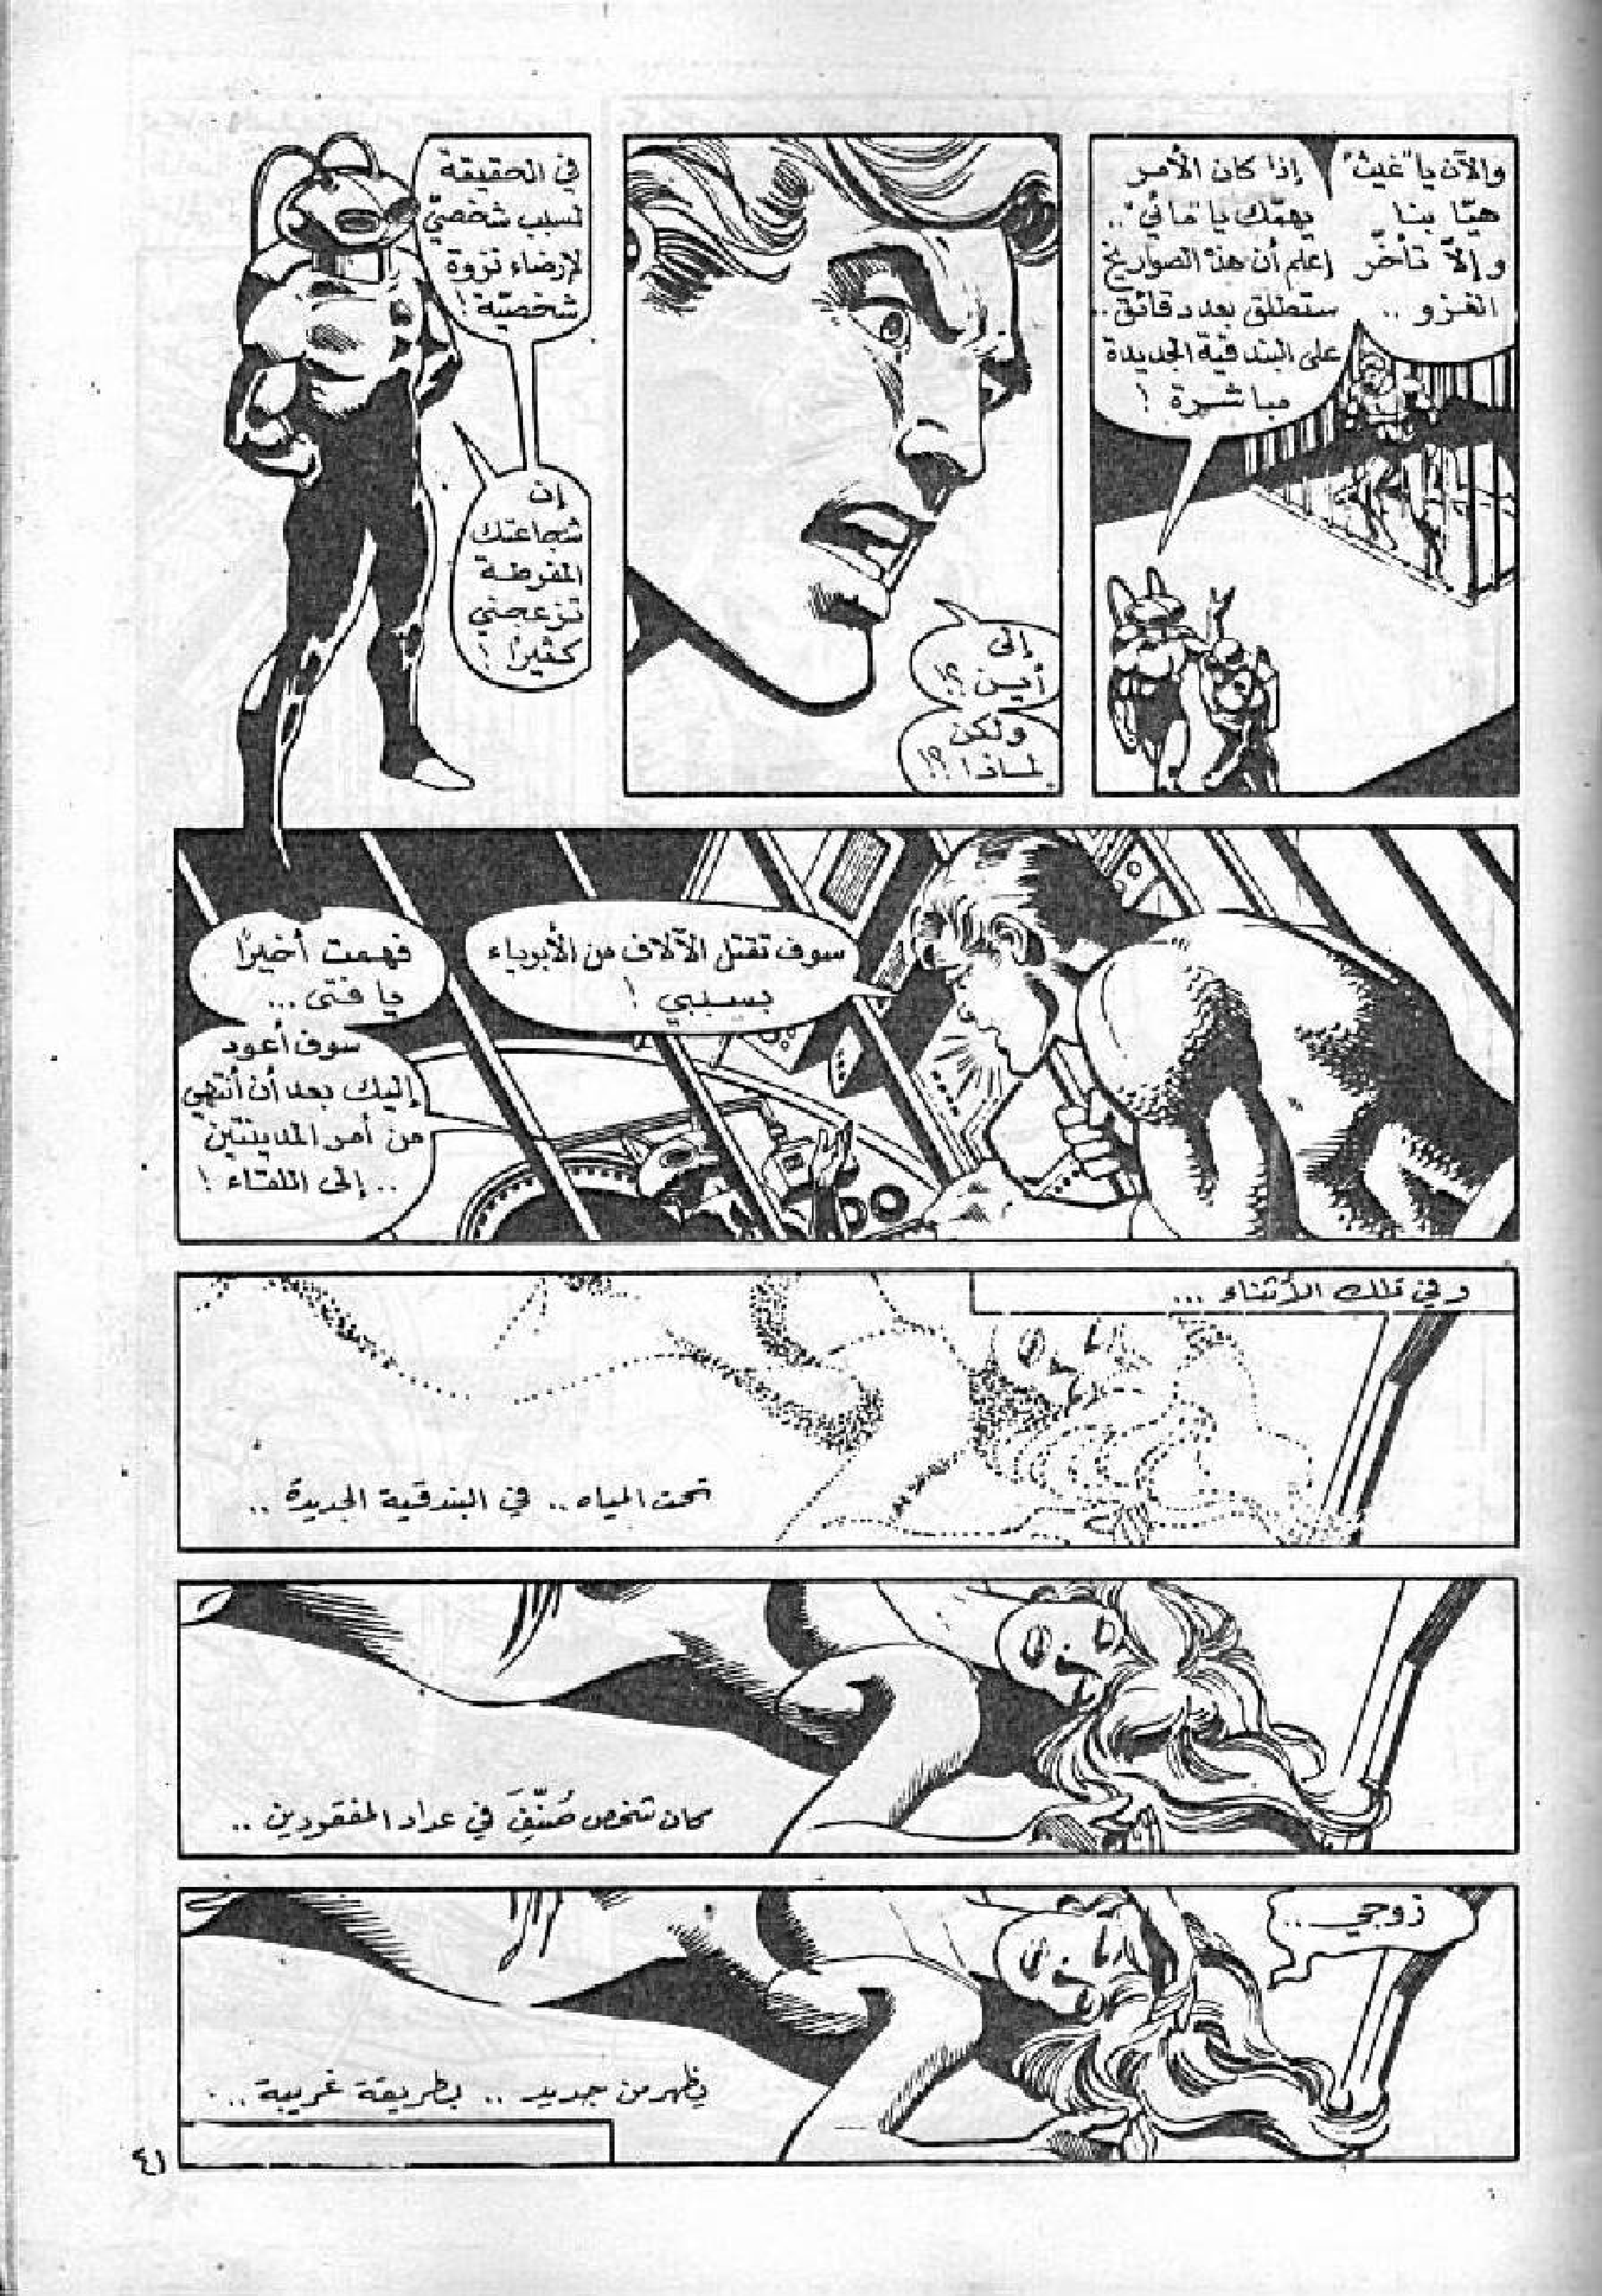 والآن يا "غيث"
هيّا بنا
وإلّا تأخّر
الغزو ..
إذا كان الأمر
يهمّك يا "مائي" ..
إعلم أن هذه الصواريخ
ستطلق بعد دقائق ..
على البندقية الجديدة
مباشرة !
إلى
أين ؟!
ولكن
لماذا ؟!
في الحقيقة
لسبب شخصيّ
لإرضاء نزوة
شخصيّة !
إن
شجاعتك
المفرطة
تزعجني
كثيرًا !
سوف تقتل الآلاف من الأبرياء
بسببي !
فهمت أخيرًا
يا فتى ...
سوف أعود
إليك بعد أن أنتهي
من أمر المدينتين
.. إلى اللقاء !
وفي تلك الأثناء ...
تحت المياه .. في البندقية الجديدة ..
كان شخص صُنِّفَ في عداد المفقودين ..
زوجي ..
يظهر من جديد .. بطريقة غريبة ...
٤١